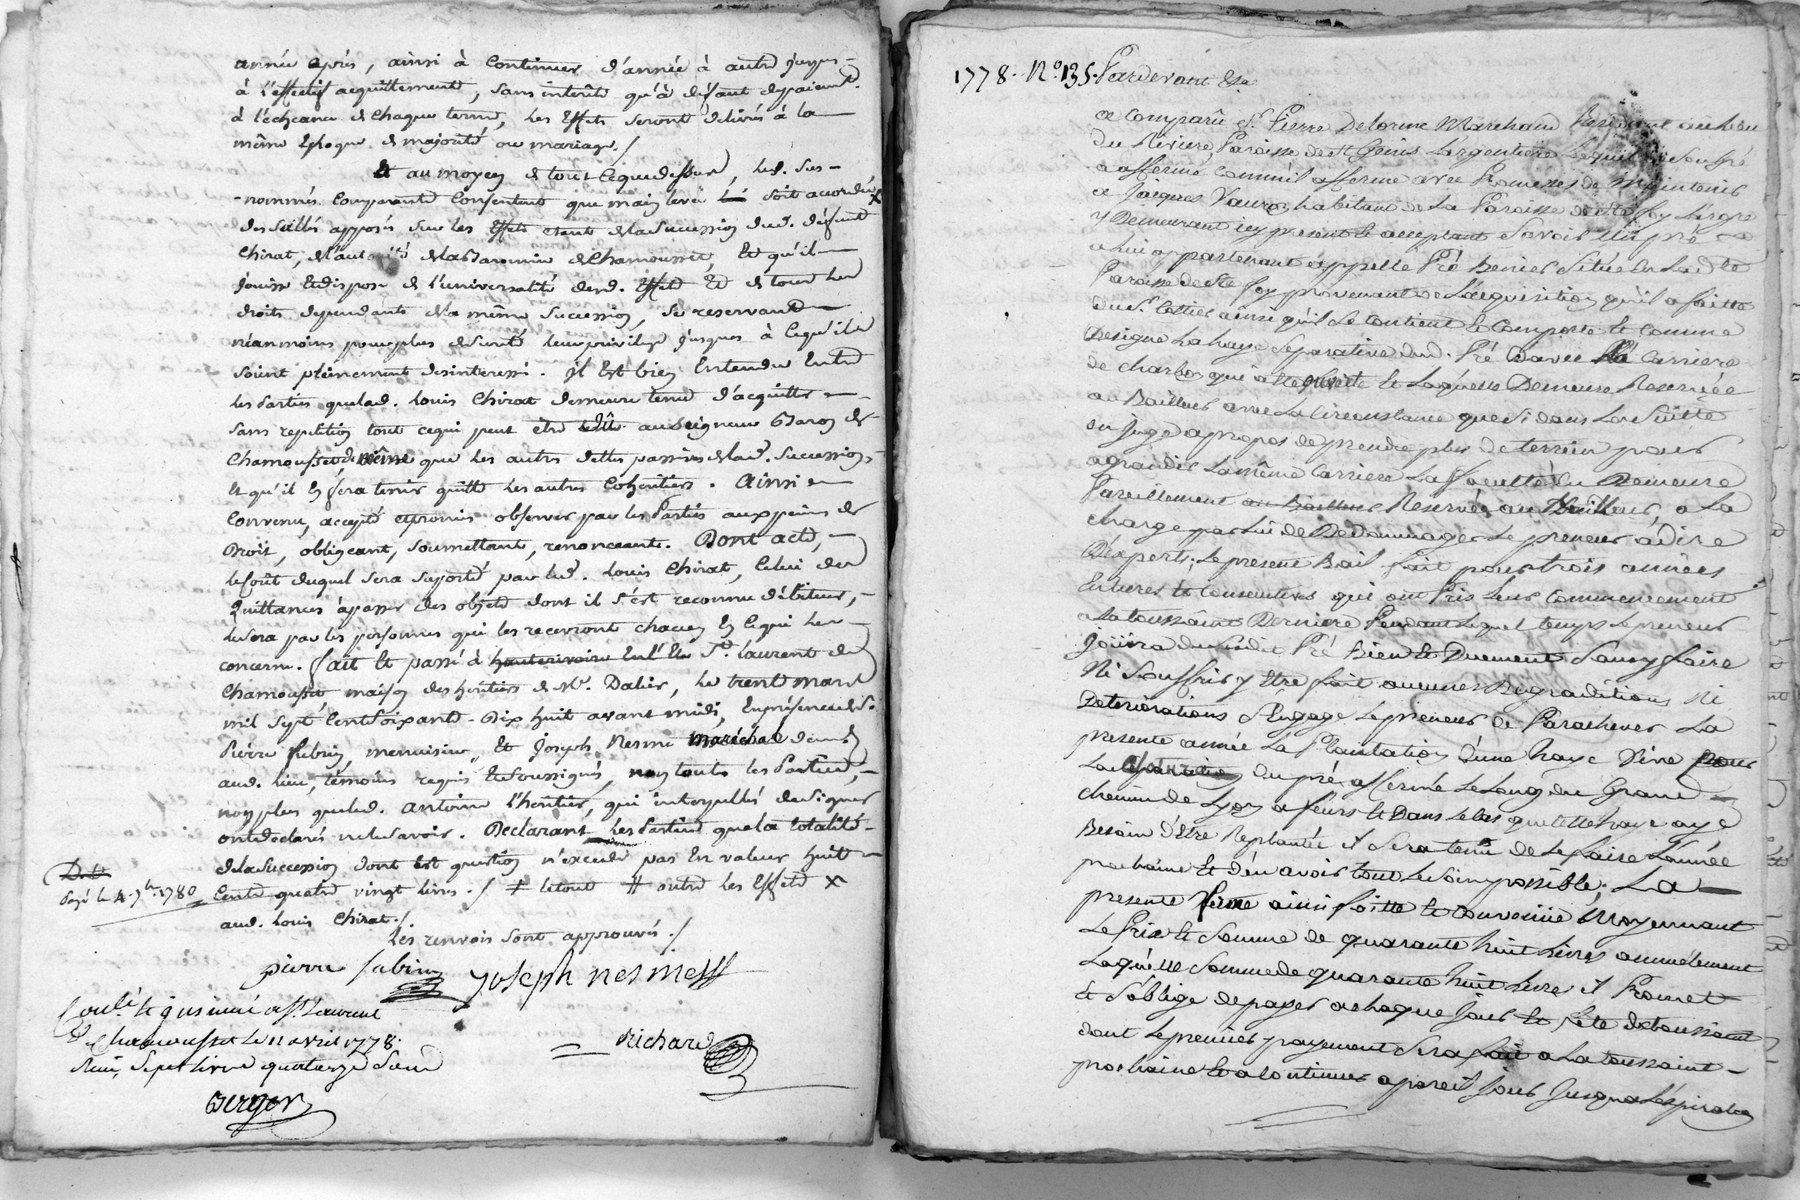 année après, ainsi à continuer d'année à autre jusques
à l'effectif acquittement, sans interêts qu'à defaut de paiement
à l'echeance de chaque terme, les effets seront delivrés à la
même Epoque de majorité ou mariage ./
Et au moyen de tout ce que dessus, les d. sus-
-nommés comparants consentent que main levée soit accordée
des scellés apposés sur les effets etants de la Succession dud. défunt
Chirat, de l'autorité de la Baronnie de Chamousset, Et qu'il
jouisse et dispose de l'universalité desd. Effets et de tous les
droits dependants de la même Succession, se reservant
néanmoins pour plus de sureté leur privilege jusques à ce qu'ils
soient pleinement desinteressés. Il Est bien Entendu Entre
les Parties que led. Louis Chirat demeure tenu d'acquitter
sans repetition tout ce qui peut être dû au Seigneur Baron de
Chamousset de même que les autres dettes passives de lad. Succession,
Et qu'il En fera tenir quitte les autres Cohéritiers. Ainsi
Convenu, accepté et promis observer par les Parties aux peines de
Droit, obligeant, soumettant, renonceant. Dont acte,
le coût duquel sera suporté par led. Louis Chirat, celui des
Quittances à passer des objets dont il s'est reconnu débiteur,
le sera par les personnes qui les recevront chacun En ce qui les
concerne. fait Et passé à St. Laurent de
Chamousset maison des héritiers de Mr. Dalier, le trente mars
mil sept Cent Soixante-Dix huit avant midi, En présence de Sr.
Pierre fabrin, menuisier, Et Joseph Nesme maréchal demts
aud. lieu, témoins requis Et soussignés, non toutes les Parties,
non plus que led. antoine l'heritier, qui interpellés de signer
ont declaré ne le savoir. Declarant les Parties que la totalité
de la Succession dont Est question n'excede pas En valeur huit
Cents quatre vingt livres ./ # le tout # outre les Effets X
aud. Louis Chirat ./
Payé le 4. 7bre 1780
Les renvois sont approuvés ./
pierre fabrin
Joseph nesme
Conlé. et insinué à St. Laurent
de Chamousset le 11 avril 1778.
Reçu, Sept livres quatorze Sous
Berger
Richard
1778. No. 135. Pardevant &a
a Comparû Sr. Pierre Delorme Marchand au lieu
du Riviere, Paroisse de St. Genis L'argentiere Lequel de Son gré
a affermé Comme il afferme avec Promesses de Maintenir
a Jacques Vauron habitant de La Paroisse de Ste foy L'argre
y Demeurant icy present et acceptant Savoir Un pré
a lui appartenant appellé Pré Benier Situé en Ladte
Paroisse de Ste foy provenant de L'acquisition qu'il a faitte
du Sr. Cottier ainsi qu'il Se Contient Se Comporte et Comme
Designe La haye Separative dud. Pré D'avec La Carriere
de charbon qui a été ouverte et Laquelle Demeure Reservée
au Bailleur avec La Circonstance que Si dans La Suitte
on juge apropos de prendre plus de terrein pour
agrandir La même Carriere La faculté en Demeure
Pareillement Reservée au Bailleur, a La
charge par Lui de Dedommager Le preneur à dire
D'experts. Le present Bail fait pour trois années
Entieres et Consecutives qui ont Pris Leur Commencement
a La toussaints Derniere Pendant Lequel temps Le preneur
Joüira dudit Pré Bien et Duement Sans y faire
Ni Souffrir y Etre fait aucunes Degraditions Ni
Deteriorations S'Engage Le preneur de Parachever La
presente année La Plantation d'une haye Vive Pour
La du pré affermé Le Long du Grand
chemin de Lyon a feurs et Dans Le Cas que cette haye aye
Besoin d'Etre Replantée Il Sera tenu de Le faire L'année
prochaine Et d'en avoir tout Le Soin possible; La
presente ferme ainsi faitte et Convenüe Moyennant
Le Prix et Somme de quarante huit Livres annuelement
Laquelle Somme de quarante huit Livres Il Promet
Et S'oblige de payer a chaque jour et fête de toussaint
dont Le premier payement Sera fait a La toussaint
prochaine Et a Continuer a pareil jour Jusqu'a L'Expiration